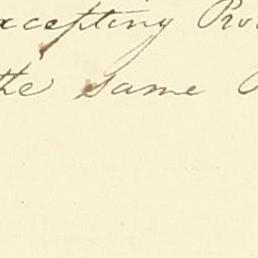 xcepting Ro
the same